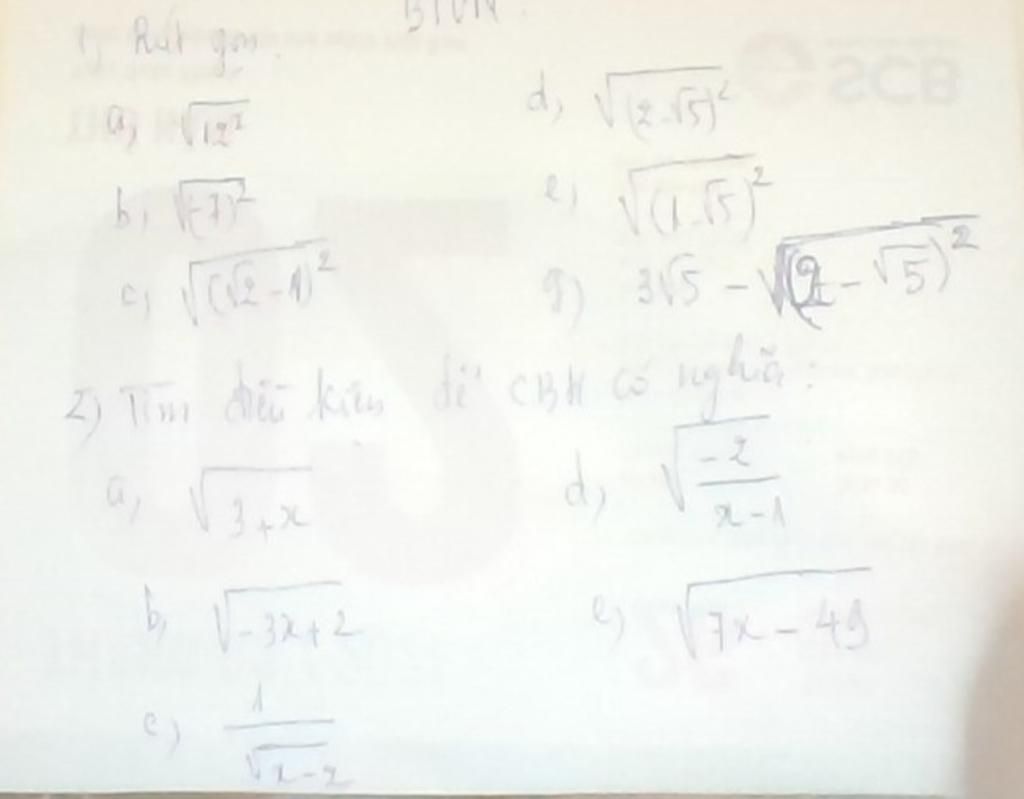 BTVN.
1) Rút gọn.
a, √12²
b, √(-7)²
c, √(√2 - 1)²
d, √(2 - √5)²
e, √(1 - √5)²
g) 3√5 - √(2 - √5)²
2) Tìm điều kiện để CBH có nghĩa:
a, √3+x
b, √-3x+2
c) 1/√x-2
d, √-2/x-1
e) √7x - 49